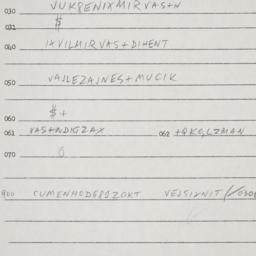 030 VUKPENIXMIRVAS+N
031 $
040 IXVILMIRVAS+DIHENT
050 VAJLEZAJNES+MUCIK
060 $+
061 VAS+NDIGZAX 062 +QKGLZMAN
070 6
900 CUMENHODEPIZOKT